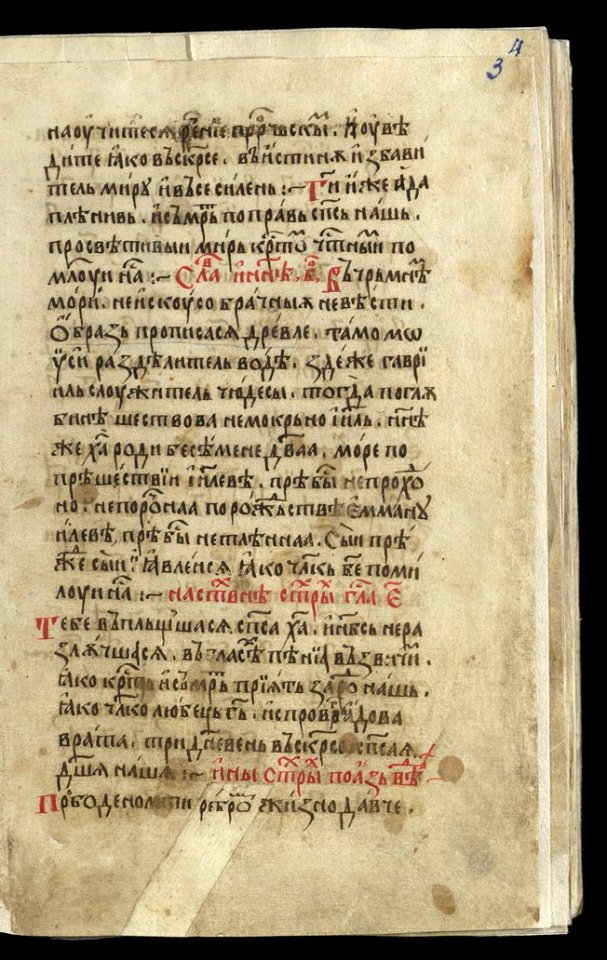 4
3
наоучитесѧ рѣнїе прⷪ҇рчьскыⷨ. И оувѣ
дите ꙗко въскр҃се. въистинѫ избави
тель миру и въсе силень :~ Ти иже ада
плѣнивь. и съмр҃ть поправь сп҃сь нашь.
просвѣтивыи мирь крⷭ҇тоⷨ чⷭ҇тныиⷨ по
млⷭ҇уи наⷭ :~ Слаⷡ и нн҃ѣ. боⷢ. Въ чрьмнѣⷨ
мори. неискоусобрачныѧ невѣсти.
Ѻбразь прописасѧ древле. тамо мѡ
ѵси раздѣлитель водѣ. зде же гаврї
иль слоужитель чюдесы. тогда поглѫ
бинѣ шествова немокрьно іи҃ль. нн҃ѣ
же ха҃ роди бесѣмене дв҃аа. море по
прѣшествїи іи҃левѣ. прѣбыⷭ непрохоⷣ
но. непороⷱнаа по рожⷣьствѣ емману
илевѣ прѣбыⷭ нетлѣннаа. Сыи прѣ
жⷣе сыиⷩ Ꙗвлеисѧ ꙗко чл҃кь бж҃е поми
лоуи наⷭ :~ настиⷯвнѣ стⷯры глаⷭ є҃
Тебе въплъщьшасѧ сп҃са ха҃. и нб҃сь нера
злѫчшасѧ. въ гласѣⷯ пѣнїа възвⷧичиⷨ.
ꙗко крⷭ҇ть и съмр҃ть прїѧть за роⷣ нашь.
ꙗко чл҃колюбець гь҃. испровръгⷲи адова
врата. тридневень въскр҃се. сп҃саѧ
дш҃ѧ нашѧ :~ ины стⷯры по азь вѣⷣ
Прободеноⷨ ти ребрⷪⷨ жизнодавче.